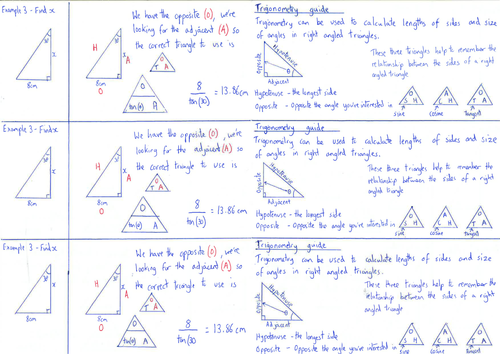 Example 3 - Find x
30°
x
8cm
H
30°
x A
8cm
O
We have the opposite (O), we're
looking for the adjacent (A) so
the correct triangle to use is
O
T A
O
tan(θ) A
8
tan(30) = 13.86cm
Trigonometry guide
Trigonometry can be used to calculate lengths of sides and size
of angles in right angled triangles.
Opposite
Hypotenuse
θ
Adjacent
These three triangles help to remember the
relationship between the sides of a right
angled triangle
Hypotenuse - the longest side
Opposite - Opposite the angle you're interested in
O
S H
sine
A
C H
cosine
O
T A
Tangent
Example 3 - Find x
30°
x
8cm
H
30°
x A
8cm
O
We have the opposite (O), we're
looking for the adjacent (A) so
the correct triangle to use is
O
T A
O
tan(θ) A
8
tan(30) = 13.86cm
Trigonometry guide
Trigonometry can be used to calculate lengths of sides and size
of angles in right angled triangles.
Opposite
Hypotenuse
θ
Adjacent
These three triangles help to remember the
relationship between the sides of a right
angled triangle
Hypotenuse - the longest side
Opposite - Opposite the angle you're interested in
O
S H
sine
A
C H
cosine
O
T A
Tangent
Example 3 - Find x
30°
x
8cm
H
30°
x A
8cm
O
We have the opposite (O), we're
looking for the adjacent (A) so
the correct triangle to use is
O
T A
O
tan(θ) A
8
tan(30 = 13.86cm
Trigonometry guide
Trigonometry can be used to calculate lengths of sides and size
of angles in right angled triangles.
Opposite
Hypotenuse
θ
Adjacent
These three triangles help to remember the
relationship between the sides of a right
angled triangle
Hypotenuse - the longest side
Opposite - Opposite the angle you're interested in
O
S H
sine
A
C H
cosine
O
T A
Tangent